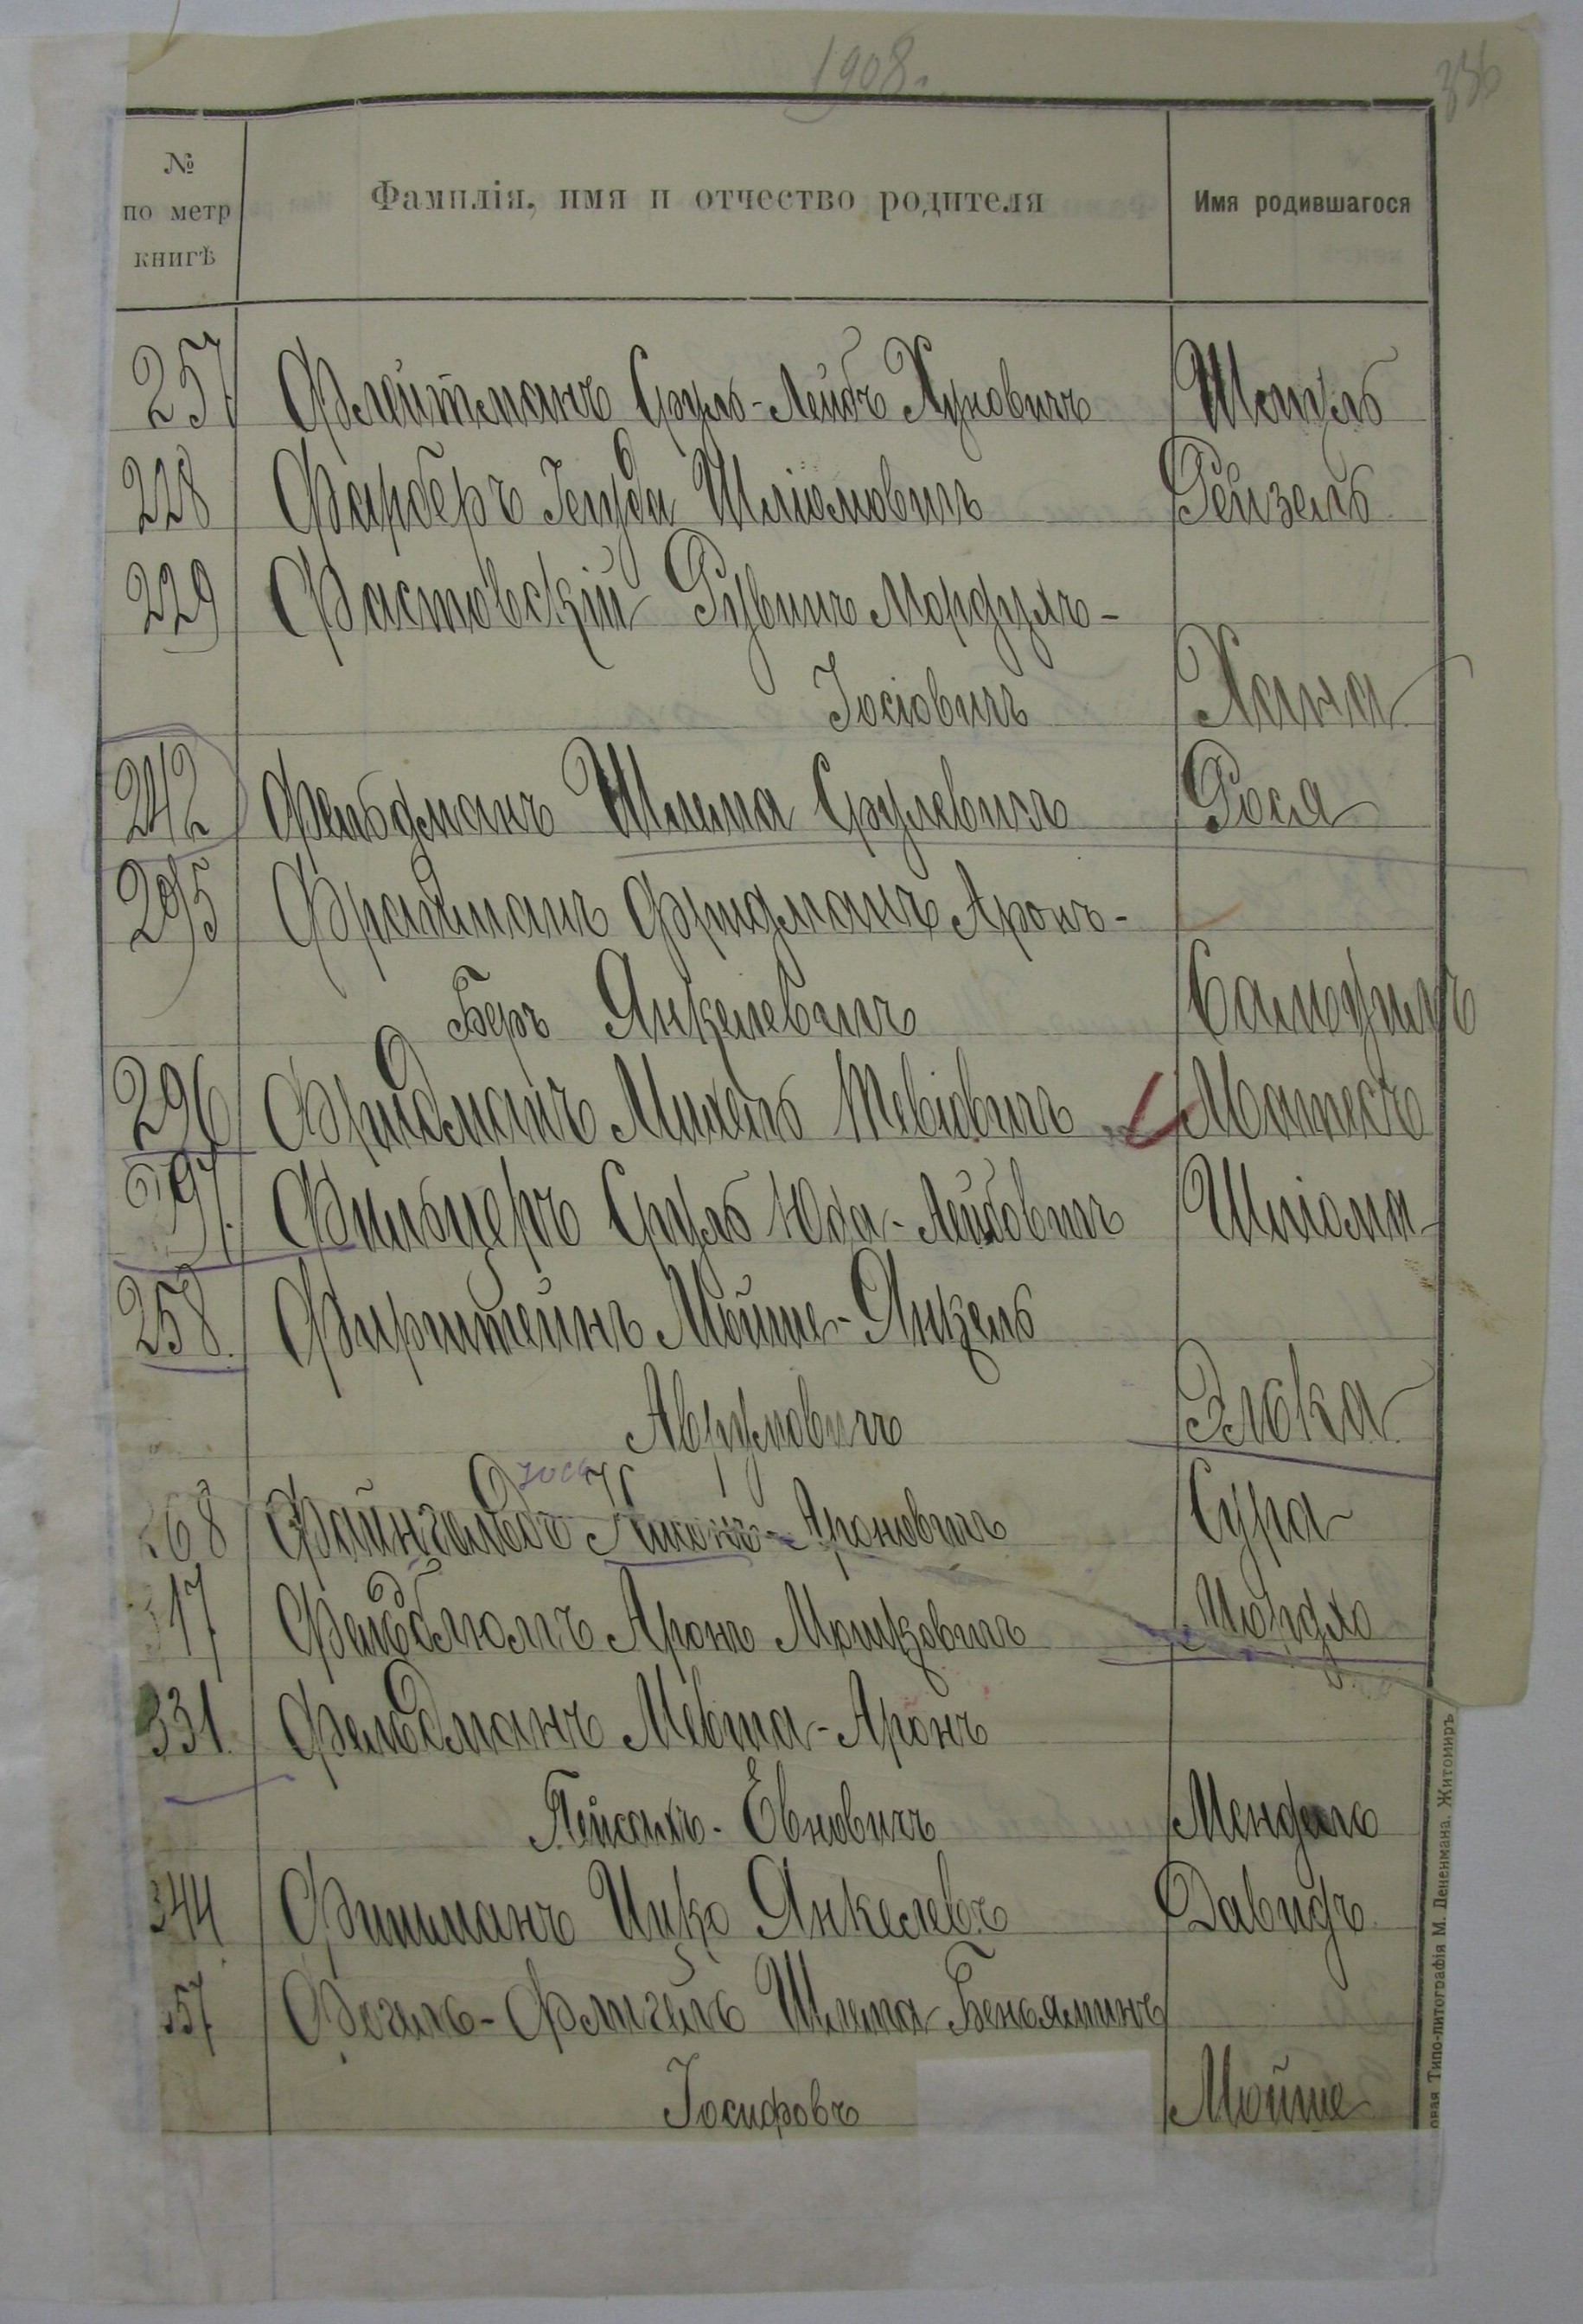 1908.
336
№
по метр
книгѣ
Фамилія, имя и отчество родителя
Имя родившагося
257 Флейтманъ Сруль-Лейбъ Хуновичъ
228 Фарберъ Іегуда Шліомовичъ Рейзель
229 Фастовскій Рувинъ Мордухъ-
Іосіовичъ Хана
242 Фельдманъ Шлема Срулевичъ Рося
295 Фридманъ Аронъ-
Беръ Янкелевичъ Самуилъ
296 Фридманъ Михель Тевіовичъ Матесъ
297. Фильцеръ Сруль Юда-Лейбовичъ Шліома
258. Фирштейнъ Мойше-Янкель
Аврумовичъ Элька
268 Файнгольдъ Ароновичъ Сура
17 Фельдблюмъ Аронъ Мошковичъ
331. Фельдманъ Аронъ
Пейсахъ-Евновичъ Мендель
344 Фишманъ Ицко Янкелевъ Давидъ
57 Фогель-Флигель Шлема-Беньяминъ
Іосифовъ Мойше
овая Типо-литографія М. Дененмана. Житомиръ